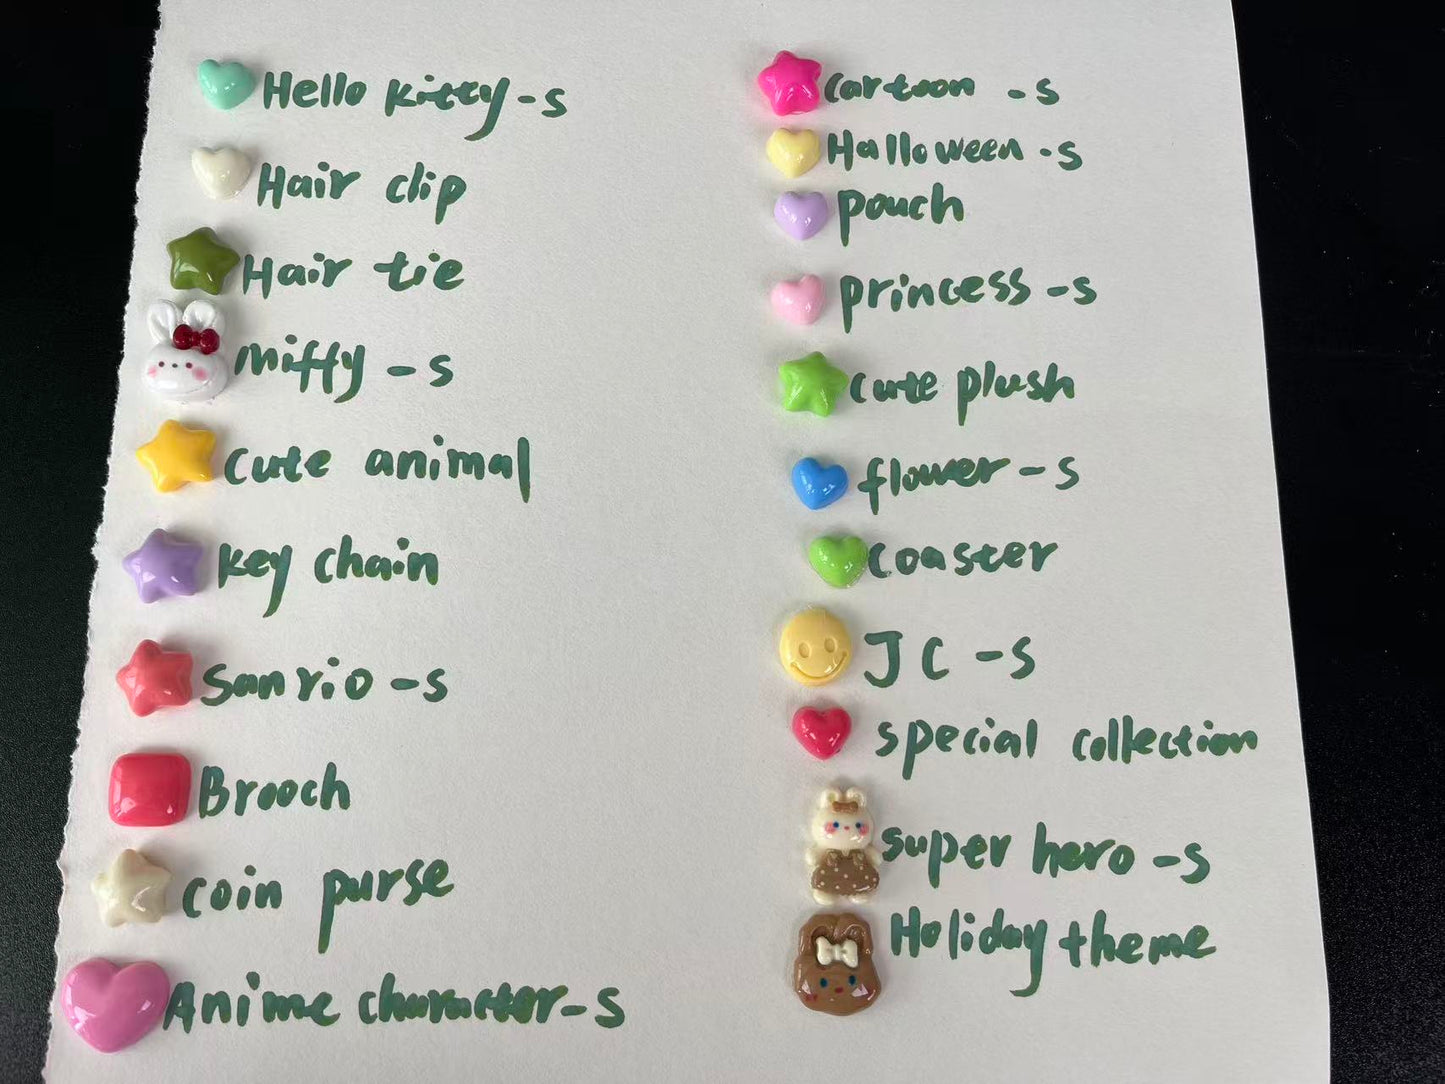 Hello Kitty - s
Hair clip
Hair tie
miffy - s
Cute animal
key chain
Sanrio - s
Brooch
coin purse
Anime character - s
Cartoon - s
Halloween - s
pouch
princess - s
cute plush
flower - s
coaster
JC - s
special collection
super hero - s
Holiday theme